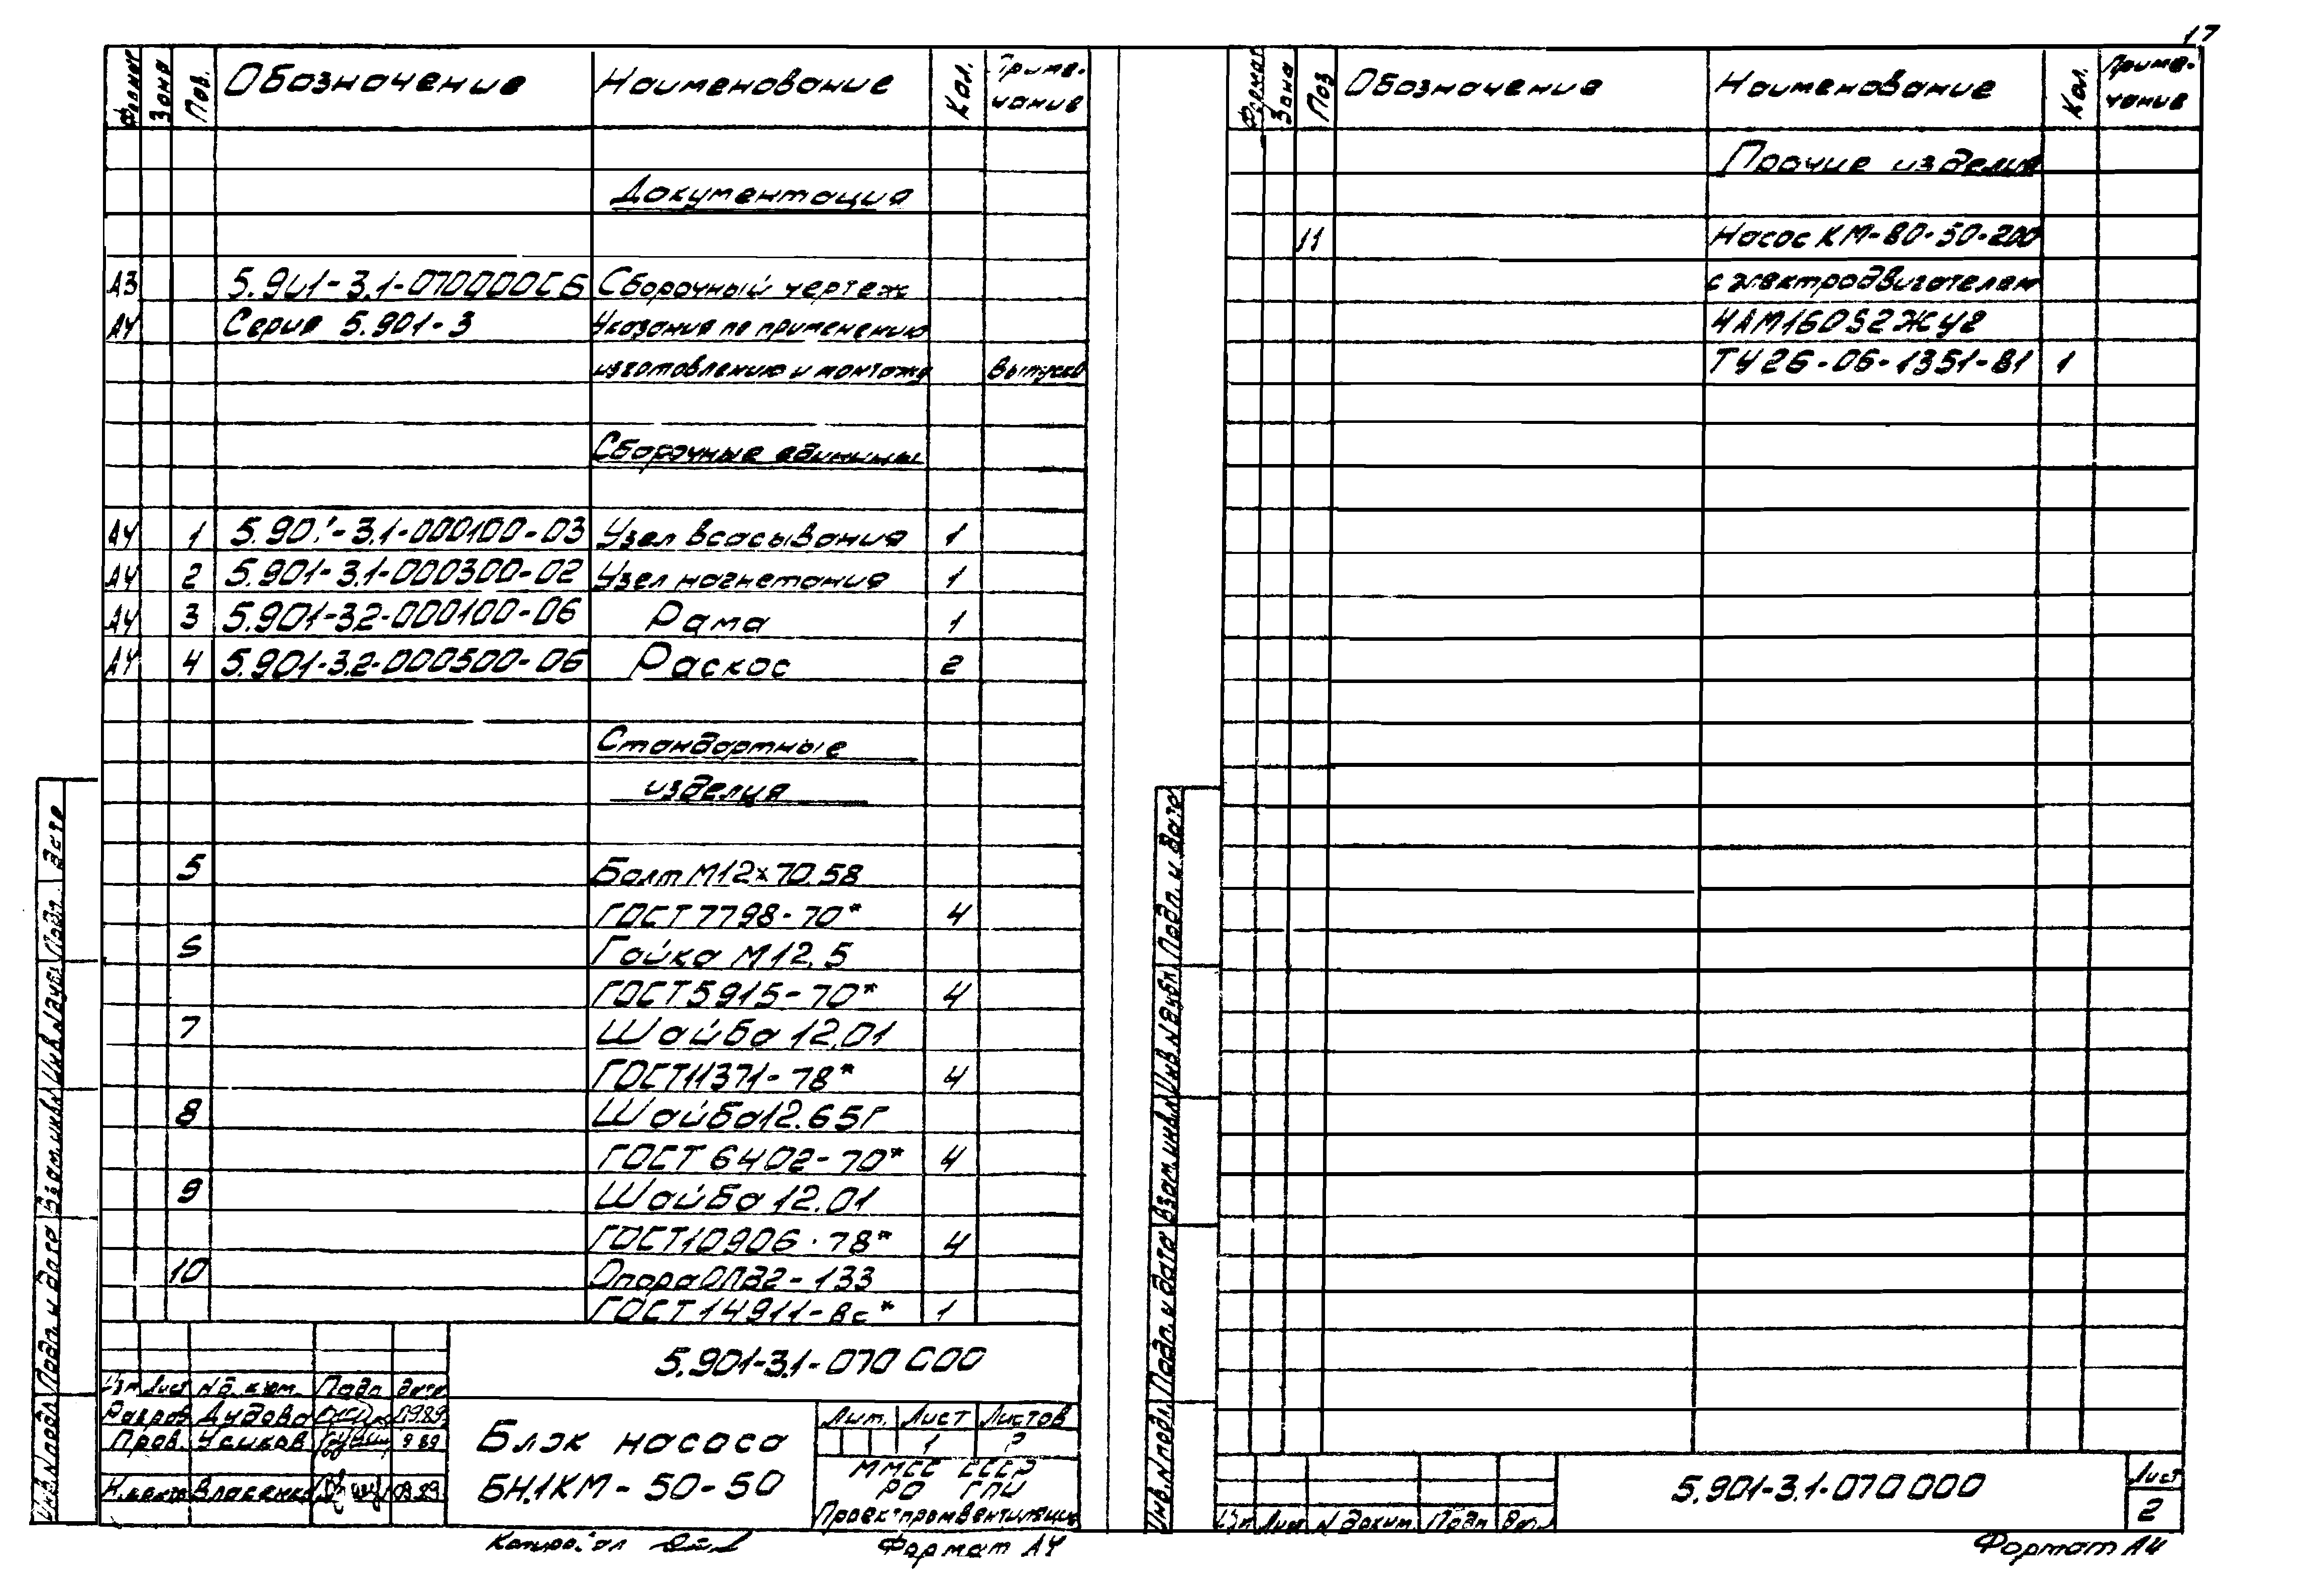 17
Формат Зона Поз. Обозначение Наименование Кол. Приме-
чание
Документация
А3 5.901-3.1-070000СБ Сборочный чертеж
А4 Серия 5.901-3 Указания по применению
изготовлению и монтажу
Сборочные единицы
А4 1 5.901-3.1-000100-03 Узел всасывания 1
А4 2 5.901-3.1-000300-02 Узел нагнетания 1
А4 3 5.901-3.2-000100-06 Рама 1
А4 4 5.901-3.2-000500-06 Раскос 2
Стандартные
изделия
5 Болт М12х70.58
ГОСТ 7798-70* 4
6 Гайка М12.5
ГОСТ 5915-70* 4
7 Шайба 12.01
ГОСТ 11371-78* 4
8 Шайба 12.65Г
ГОСТ 6402-70* 4
9 Шайба 12.01
ГОСТ 10906-78* 4
10 Опора ОПБ2-133
ГОСТ 14911- * 1
Инв. N подл. Подп. и дата Взам. инв. N Инв. N дубл. Подп. и дата
5.901-3.1-070 000
Изм Лист N докум. Подп Дата
Разраб Дудова 09.89
Пров. Усиков 9 89
Н.контр Власенко 09.89
Блок насоса
БН.1КМ-50-50
Лит. Лист Листов
1 2
ММСС СССР
РО ГПИ
Проектпромвентиляция
Копировал
Формат А4
Формат Зона Поз Обозначение Наименование Кол. Приме-
чание
Прочие изделия
11 Насос КМ-80-50-200
с электродвигателем
4АМ160S2ЖУ2
ТУ 26-06-1351-81 1
Инв. N подл. Подп. и дата Взам. инв. N Инв. N дубл. Подп. и дата
5.901-3.1-070 000
Лист
2
Изм Лист N докум. Подп Дата
Формат А4